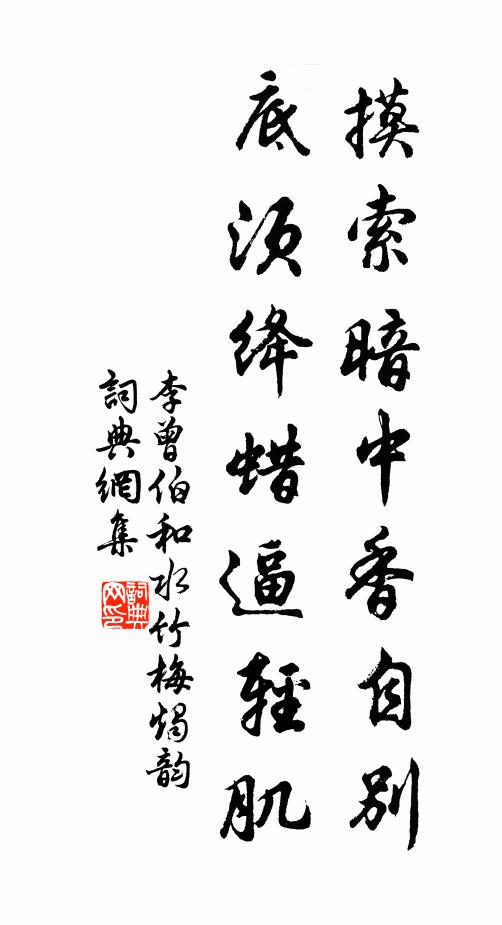 摸索暗中香自别
底须绛蜡逼轻肌
李曾伯和水竹梅烛韵
詞典網集
詞典网印